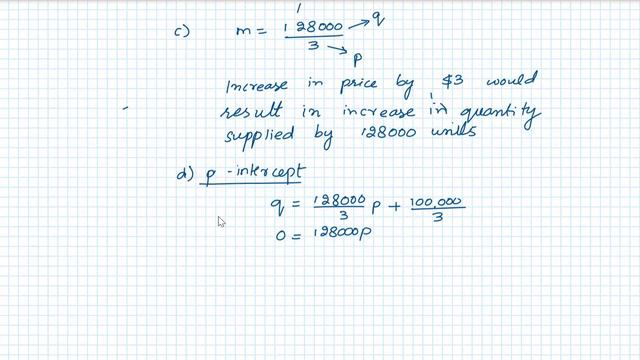 c) m = 128000 → q
3 → p
Increase in price by $3 would
result in increase in quantity
supplied by 128000 units
d) p - intercept
q = 128000/3 p + 100,000/3
0 = 128000p